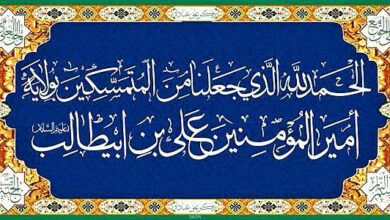 الحمد لله الذي جعلنا من المتمسكين بولاية
أمير المؤمنين علي بن ابيطالب (عليه السلام)